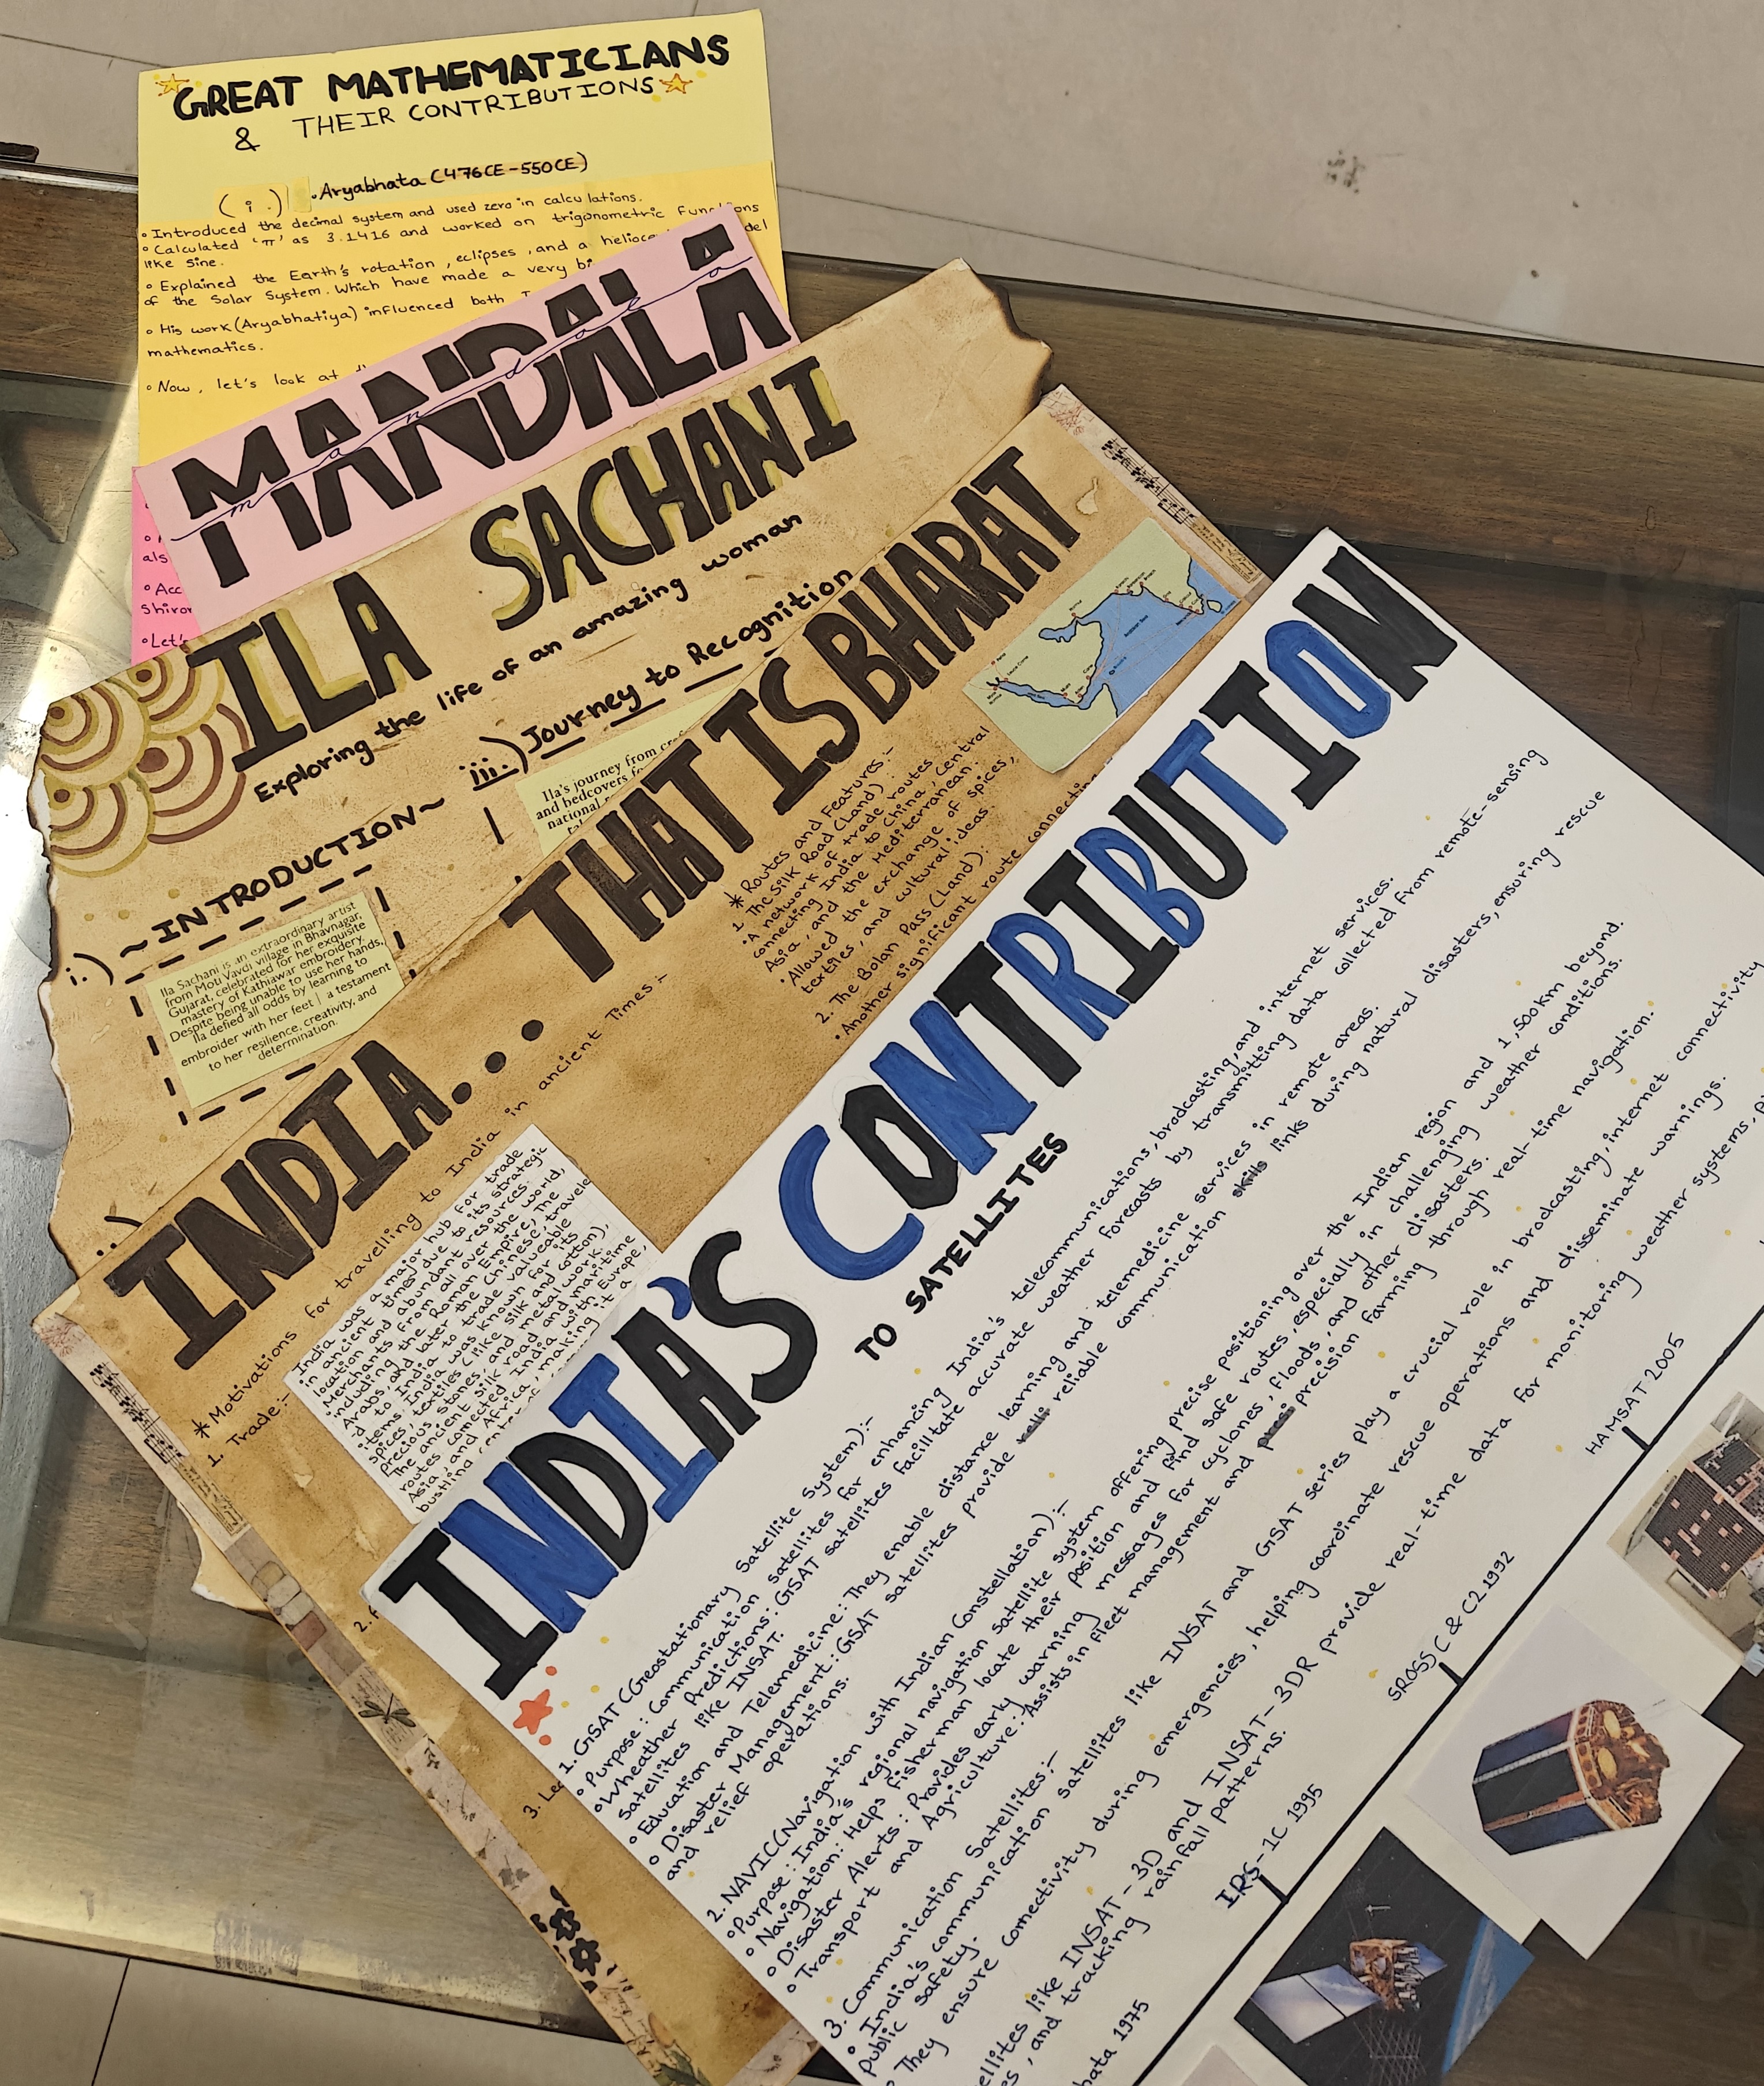 GREAT MATHEMATICIANS
& THEIR CONTRIBUTIONS
(i.) • Aryabhata (476CE-550CE)
• Introduced the decimal system and used zero in calculations.
• Calculated 'π' as 3.1416 and worked on trigonometric functions
like sine.
• Explained the Earth's rotation, eclipses, and a
of the Solar System. Which have made a very
• His work (Aryabhatiya) influenced both
mathematics.
• Now, let's look at
MANDALA
mandala
als
• Acc
• Let's
ILA SACHANI
Exploring the life of an amazing woman
i.) ~INTRODUCTION~
Ila Sachani is an extraordinary artist
from Moti Vavdi village in Bhavnagar,
Gujarat, celebrated for her exquisite
mastery of Kathiawar embroidery.
Despite being unable to use her hands,
Ila defied all odds by learning to
embroider with her feet | a testament
to her resilience, creativity, and
determination.
iii.) Journey to Recognition
Ila's journey from
and bedcovers
national
INDIA... THAT IS BHARAT
* Motivations for travelling to India in ancient Times:-
1. Trade:-
India was a major hub for trade
in ancient times due to its strategic
location and abundant resources.
Merchants from all over the world,
including the Roman Empire, The
Arabs, and later the Chinese, travele
d to India to trade valueable
items. India was known for its
spices, textiles (like silk and cotton),
precious stones, and metal work.
The ancient silk road and maritime
routes connected India with Europe,
Asia, and Africa, making it a
bustling
2.
3.
* Routes and Features:-
1. The Silk Road (Land):
• A network of trade routes
connecting India to China, Central
Asia, and the Mediterranean.
• Allowed the exchange of spices,
textiles, and cultural ideas.
2. The Bolan Pass (Land):
• Another significant route connecting
Arabian Sea
INDIA'S CONTRIBUTION
TO SATELLITES
1. GSAT (Geostationary Satellite System):-
• Purpose: Communication satellites for enhancing India's telecommunications, bradcasting, and internet services.
• Wheather Predictions: GSAT satellites facilitate accurate weather forecasts by transmitting data collected from remote-sensing
satellites like INSAT.
• Education and Telemedicine: They enable distance learning and telemedicine services in remote areas.
• Disaster Management: GSAT satellites provide reliable communication skills links during natural disasters, ensuring rescue
and relief operations.
2. NAVIC (Navigation with Indian Constellation):-
• Purpose: India's regional navigation satellite system offering precise positioning over the Indian region and 1,500km beyond.
• Navigation: Helps fisherman locate their position and find safe routes, especially in challenging weather conditions.
• Disaster Alerts: Provides early warning messages for cyclones, floods, and other disasters.
• Transport and Agriculture: Assists in fleet management and preci precision farming through real-time navigation.
3. Communication Satellites:-
• India's communication satellites like INSAT and GSAT series play a crucial role in brodcasting, internet connectivity
public safety.
• They ensure connectivity during emergencies, helping coordinate rescue operations and disseminate warnings.
ellites like INSAT-3D and INSAT-3DR provide real-time data for monitoring weather systems,
es, and tracking rainfall patterns.
hata 1975
IRS-1C 1995
SROSS C & C2 1992
HAMSAT 2005